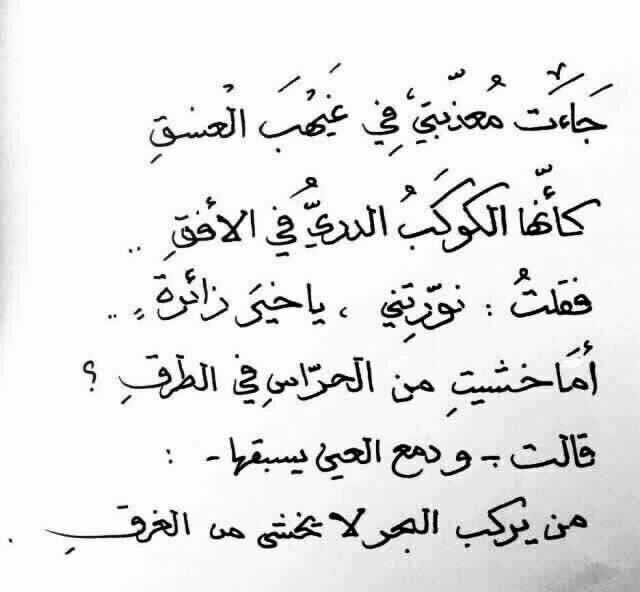 جَاءَت مُعذّبتي، فِي غَيْهَبَ الْغسقِ
كأنّها الكوكَبُ الدريُّ في الأفقِ ..
فقلتُ : نوّرتِني ، يا خيرَ زائرةٍ ..
أمَا خشيتِ من الحرّاسِ في الطرقِ ؟
قالت - ودمع العين يسبقها - :
من يركب البحر لا يخشى من الغرقِ .